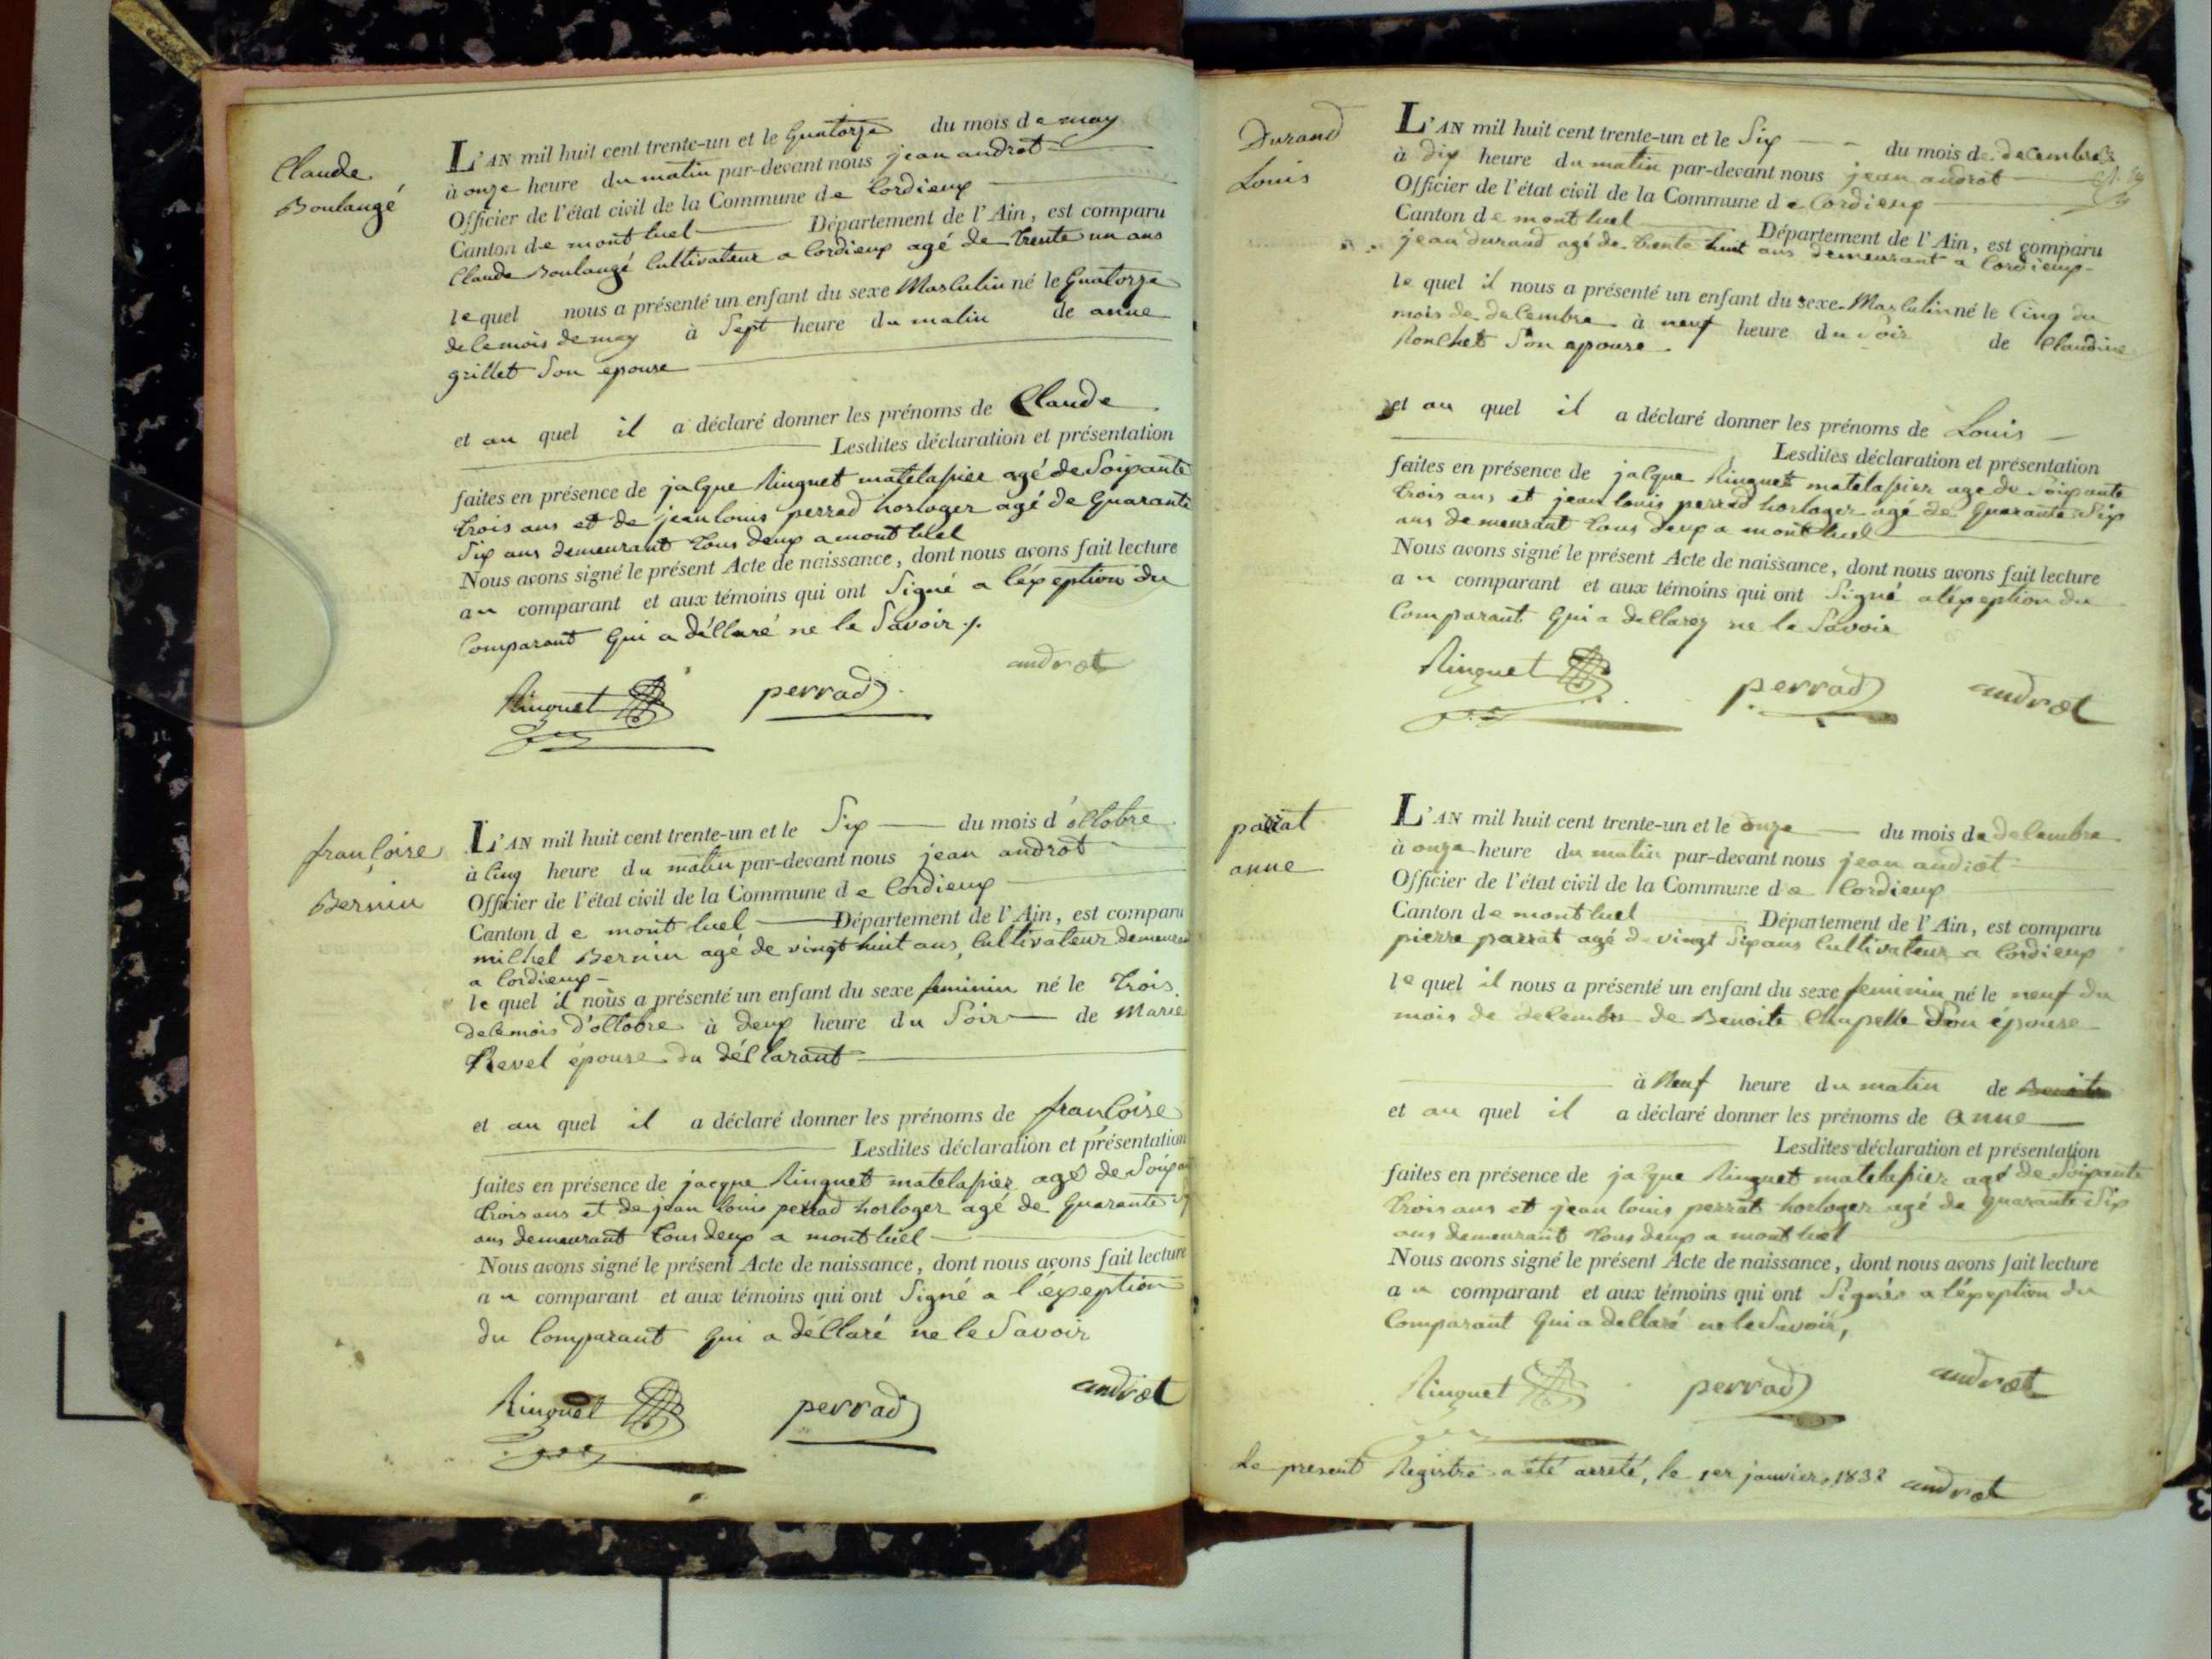 Claude
Boulangé
L'AN mil huit cent trente-un et le quatorze du mois de may
à onze heure du matin par-devant nous jean androt
Officier de l'état civil de la Commune de Cordieux
Canton de montluel Département de l'Ain, est comparu
Claude Boulangé Cultivateur a Cordieux agé de trente un ans
lequel nous a présenté un enfant du sexe Masculin né le quatorze
de ce mois de may à Sept heure du matin de anne
grillet Son epouse
et au quel il a déclaré donner les prénoms de Claude
Lesdites déclaration et présentation
faites en présence de jacque Ringuet matelassier agé de Soixante
trois ans et de jean louis perrad horloger agé de quarante
Six ans demeurant tous deux a montluel
Nous avons signé le présent Acte de naissance, dont nous avons fait lecture
au comparant et aux témoins qui ont Signé a l'exeption du
Comparant qui a déclaré ne le Savoir /.
androt
Ringuet perrad
françoise
Bernin
L'AN mil huit cent trente-un et le Six du mois d'octobre
à cinq heure du matin par-devant nous jean androt
Officier de l'état civil de la Commune de Cordieux
Canton de montluel Département de l'Ain, est comparu
michel Bernin agé de vingt huit ans, Cultivateur demeurant
a Cordieux
lequel il nous a présenté un enfant du sexe feminin né le trois
de ce mois d'octobre à deux heure du Soir de Marie
Revel épouse du déclarant
et au quel il a déclaré donner les prénoms de françoise
Lesdites déclaration et présentation
faites en présence de jacque Ringuet matelassier agé de Soixan
trois ans et de jean louis perrad horloger agé de quarante
ans demeurant tous deux a montluel
Nous avons signé le présent Acte de naissance, dont nous avons fait lecture
au comparant et aux témoins qui ont Signé a l'éxeption
du Comparant qui a déclaré ne le Savoir
Ringuet perrad androt
Durand
Louis
L'AN mil huit cent trente-un et le Six du mois de decembre
à dix heure du matin par-devant nous jean androt
Officier de l'état civil de la Commune de Cordieux
Canton de montluel Département de l'Ain, est comparu
jean durand agé de trente huit ans demeurant a Cordieux
lequel il nous a présenté un enfant du sexe Masculin né le cinq du
mois de decembre à neuf heure du Soir de Claudine
Ronchet Son epouse
et au quel il a déclaré donner les prénoms de Louis
Lesdites déclaration et présentation
faites en présence de jacque Ringuet matelassier agé de Soixante
trois ans et jean louis perrad horloger agé de quarante Six
ans demeurant tous deux a montluel
Nous avons signé le présent Acte de naissance, dont nous avons fait lecture
au comparant et aux témoins qui ont Signé a l'exeption du
Comparant qui a declarez ne le Savoir
Ringuet perrad androt
parrat
anne
L'AN mil huit cent trente-un et le onze du mois de decembre
à onze heure du matin par-devant nous jean androt
Officier de l'état civil de la Commune de Cordieux
Canton de montluel Département de l'Ain, est comparu
pierre parrat agé de vingt Six ans Cultivateur a Cordieux
lequel il nous a présenté un enfant du sexe feminin né le neuf du
mois de decembre de Benoite Chapelle Son épouse
à Neuf heure du matin de Benoite
et au quel il a déclaré donner les prénoms de anne
Lesdites déclaration et présentation
faites en présence de jacque Ringuet matelassier agé de Soixante
trois ans et jean louis perrat horloger agé de quarante Six
ans demeurant tous deux a montluel
Nous avons signé le présent Acte de naissance, dont nous avons fait lecture
au comparant et aux témoins qui ont Signés a l'éxeption du
Comparant qui a declaré ne le Savoir,
Ringuet perrad androt
Le present Registre a été arreté, le 1er janvier, 1832 androt